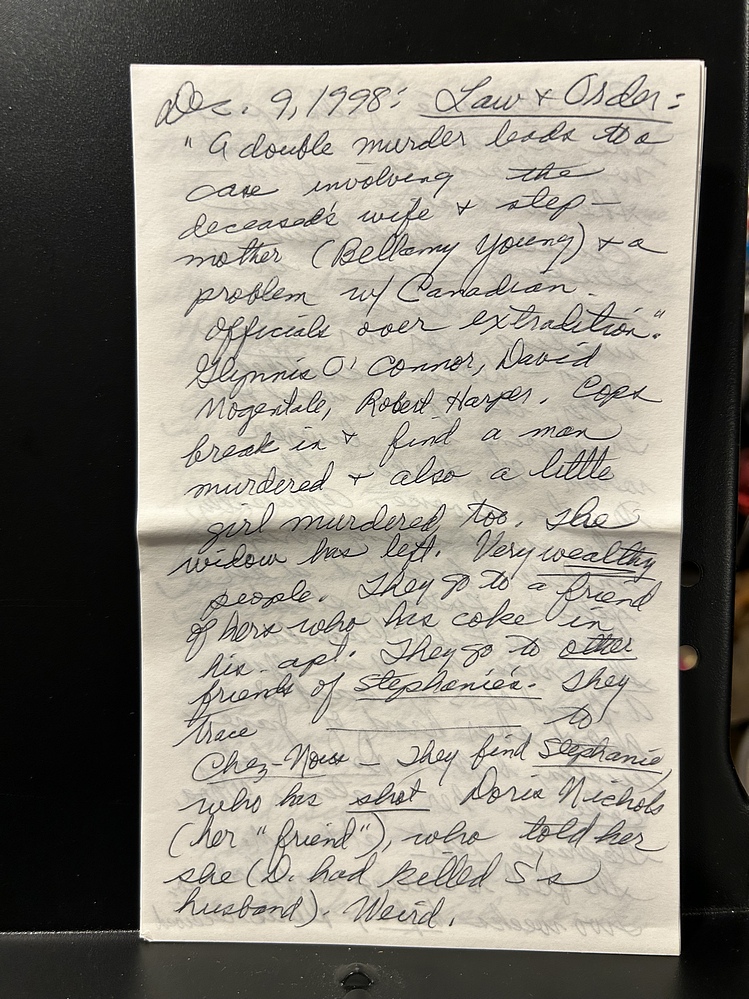 Dec. 9, 1998: Law & Order:
"A double murder leads to a
case involving the
deceased's wife & step-
mother (Bellamy Young) & a
problem w/ Canadian
officials over extradition."
Glynnis O'Connor, David
Mogentale, Robert Harper. Cops
break in & find a man
murdered & also a little
girl murdered, too. The
widow has left. Very wealthy
people. They go to a friend
of hers who has coke in
his apt. They go to other
friends of Stephanie's. They
trace ________ to
Chez-Nous – They find Stephanie,
who has shot Doris Nichols
(her "friend"), who told her
she (D. had killed S's
husband). Weird.